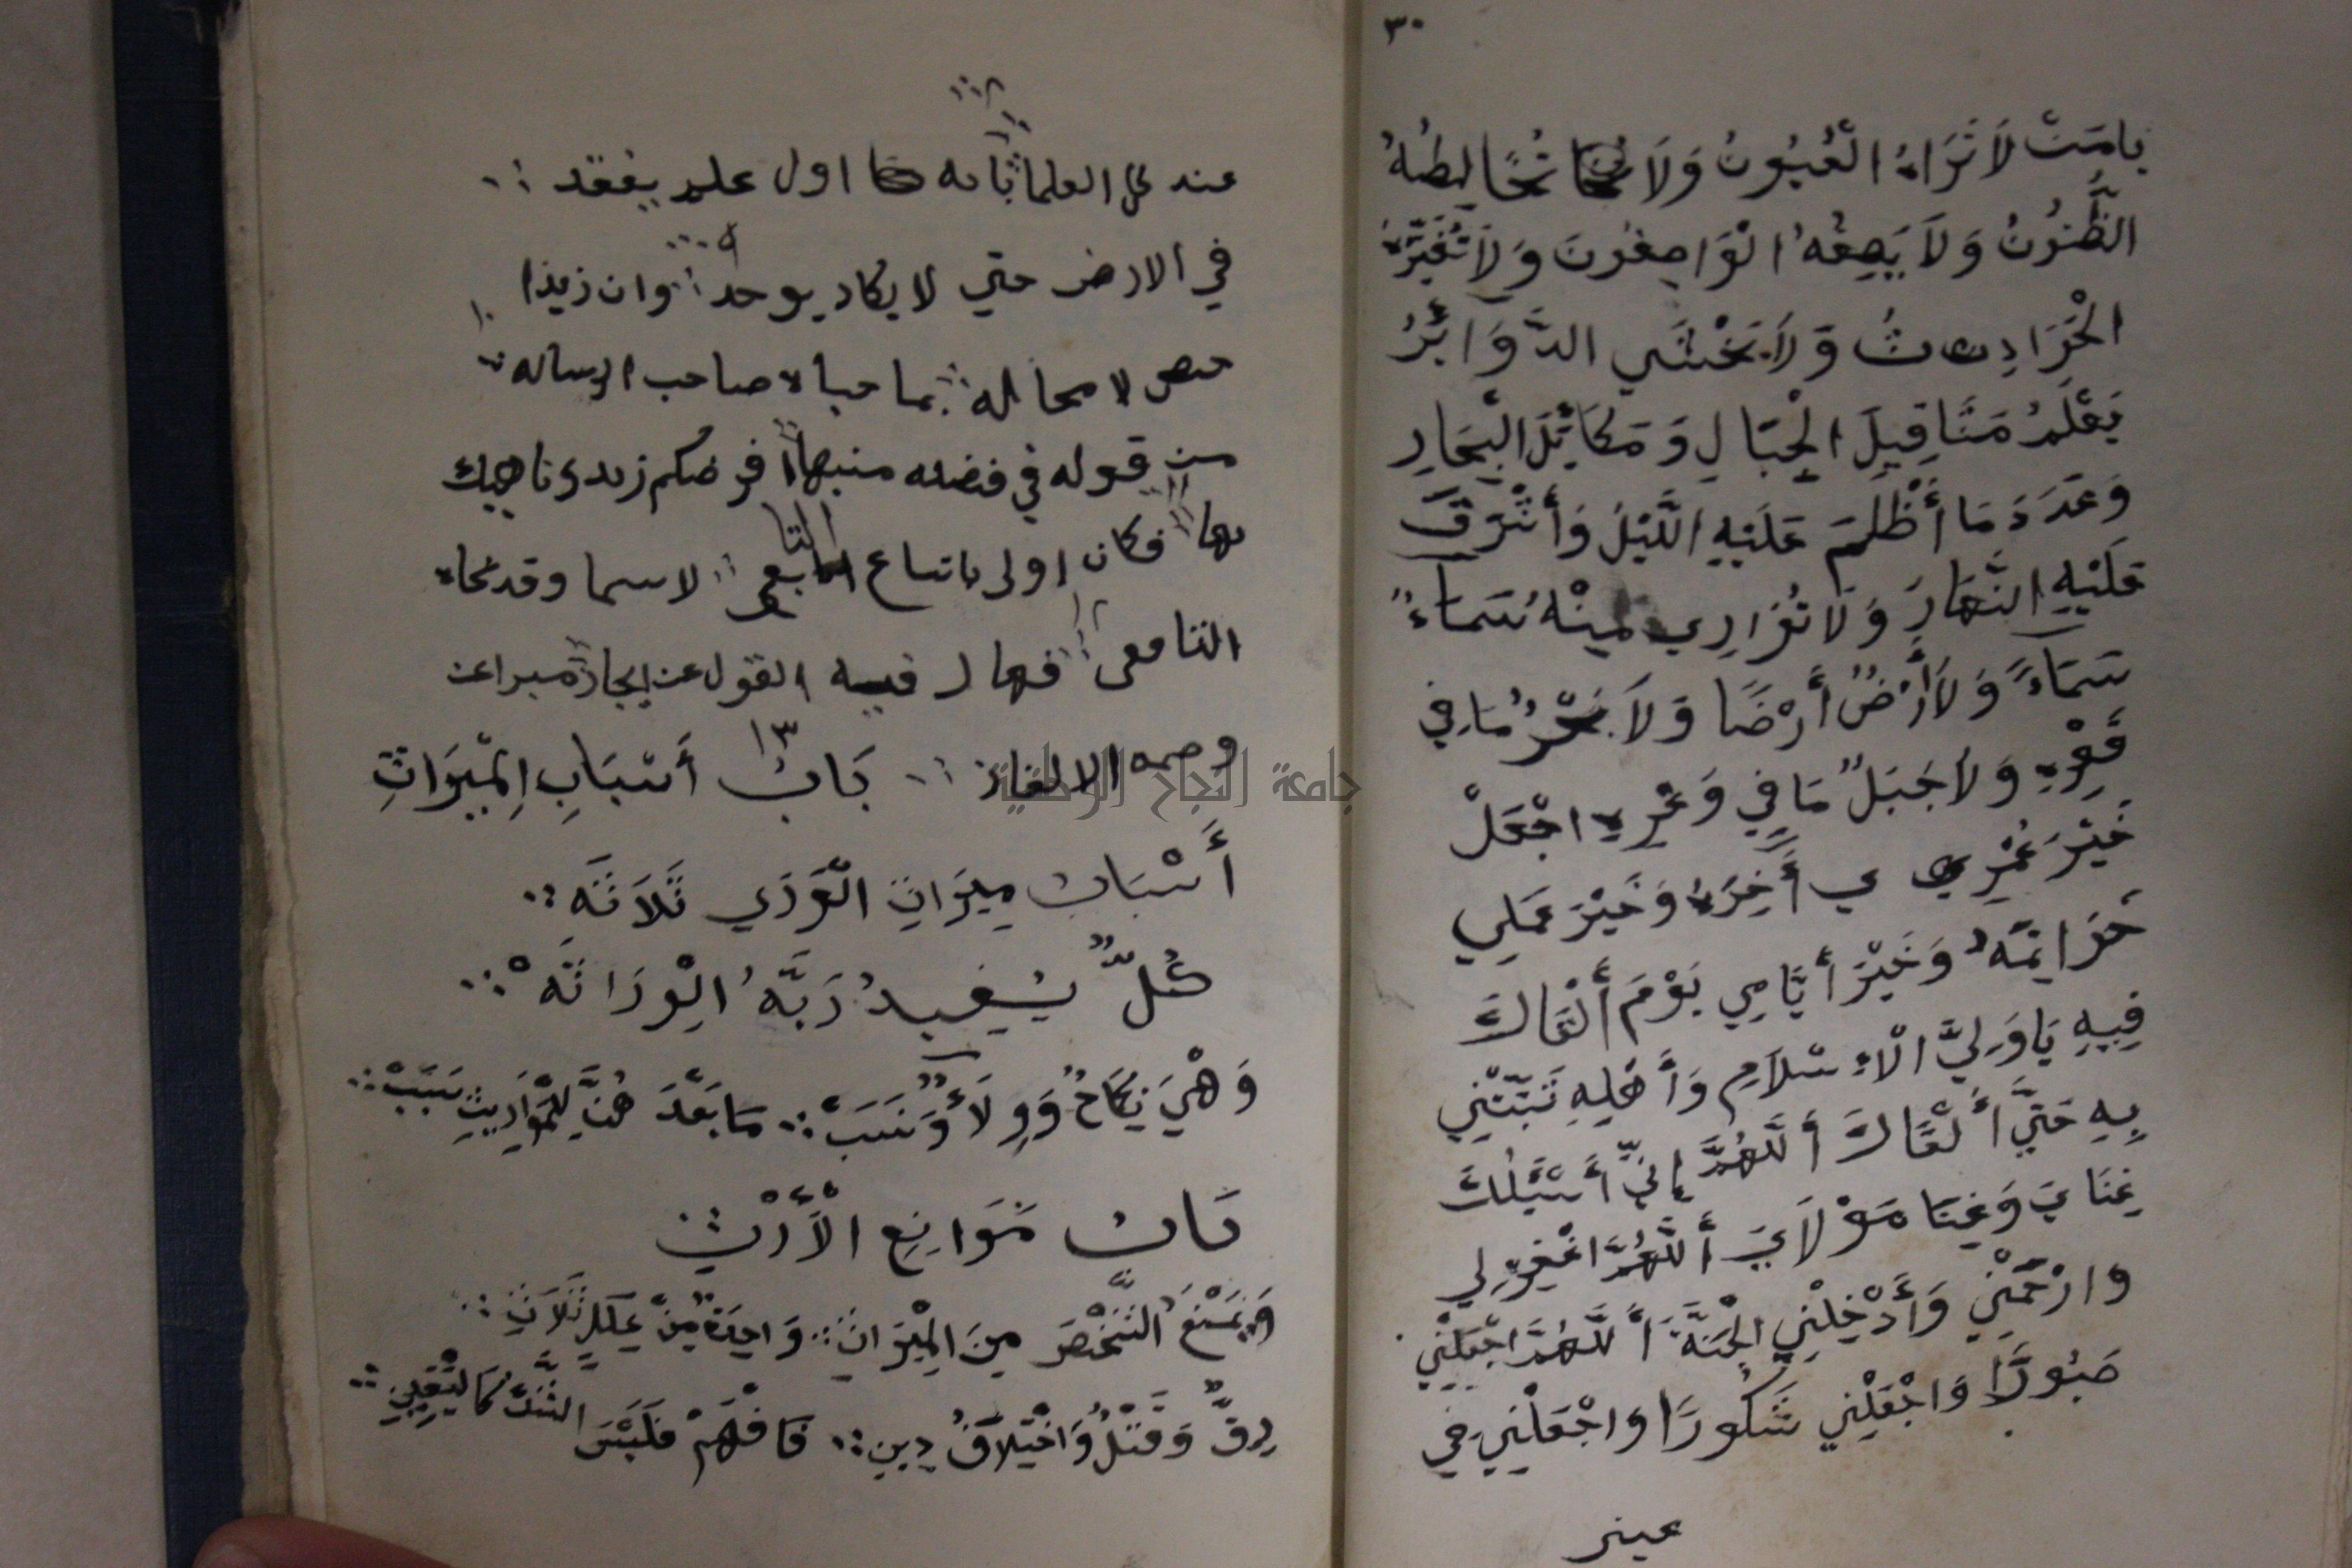 ٣٠
يامَنْ لَا تَرَاهُ الْعُيُونُ وَلَا تُخَالِطُهُ
الظُّنُونُ وَلَا يَصِفُهُ الْوَاصِفُونَ وَلَا تُغَيِّرُهُ
الْحَوَادِثُ وَلَا يَخْشَي الدَّوَائِرُ
يَعْلَمُ مَثَاقِيلَ الْجِبَالِ وَمَكَائِلَ الْبِحَارِ
وَعَدَدَ مَا أَظْلَمَ عَلَيْهِ اللَّيْلُ وَأَشْرَقَ
عَلَيْهِ النَّهَارُ وَلَا تُوَارِي مِنْهُ سَمَاءٌ
سَمَاءً وَلَا أَرْضٌ أَرْضًا وَلَا بَحْرٌ مَا فِي
قَعْرِهِ وَلَا جَبَلٌ مَا فِي وَعْرِهِ اجْعَلْ
خَيْرَ عُمْرِي أَخِرَهُ وَخَيْرَ عَمَلِي
خَوَاتِمَهُ وَخَيْرَ أَيَّامِي يَوْمَ أَلْقَاكَ
فِيهِ يَا وَلِيَّ الْاِسْلَامِ وَأَهْلِهِ ثَبِّتْنِي
بِهِ حَتَّي أَلْقَاكَ أَللَّهُمَّ إِنِّي أَسْئَلُكَ
غِنَايَ وَغِنَا مَوْلَايَ أَللَّهُمَّ اغْفِرْ لِي
وارْحَمْنِي وَأَدْخِلْنِي الْجَنَّةَ أَللَّهُمَّ اجْعَلْنِي
صَبُورًا وَاجْعَلْنِي شَكُورًا وَاجْعَلْنِي فِي
عين
عند كل العلما بانه اول علم يفقد
في الارض حتي لا يكاد يوجد وان زيدا
خص لا محاله بما حباه صاحب الرساله
من قوله في فضله منبها افرضكم زيد وناهيك
بها فكان اولى باتباع التابعي لا سيما وقد نحاه
الشافعي فهاك فيه القول عن ايجاز مبرا عن
وصمه الالغاز بَابُ أَسْبَابِ الْمِيرَاثِ
أَسْبَابُ مِيرَاثِ الْوَرَي ثَلَاثَه
كُلٌّ يُفِيدُ رَبَّهُ الْوِرَاثَهْ
وَهْيَ نِكَاحٌ وَوِلَأٌ وَنَسَبْ مَا بَعْدَ هُنَّ لِلْمَوَارِيثِ سَبَبْ
بَابُ مَوَانِعِ الْأَرْثِ
وَيَمْنَعُ الشَّخْصَ مِنَ الْمِيرَاثِ وَاحِدَةٌ مِنْ عِلَلٍ ثَلَاثِ
رِقٌّ وَقَتْلٌ وَاخْتِلَافُ دِينِ فَافْهَمْ فَلَيْسَ الشَّكُّ كَالْيَقِينِ
جامعة النجاح الوطنية